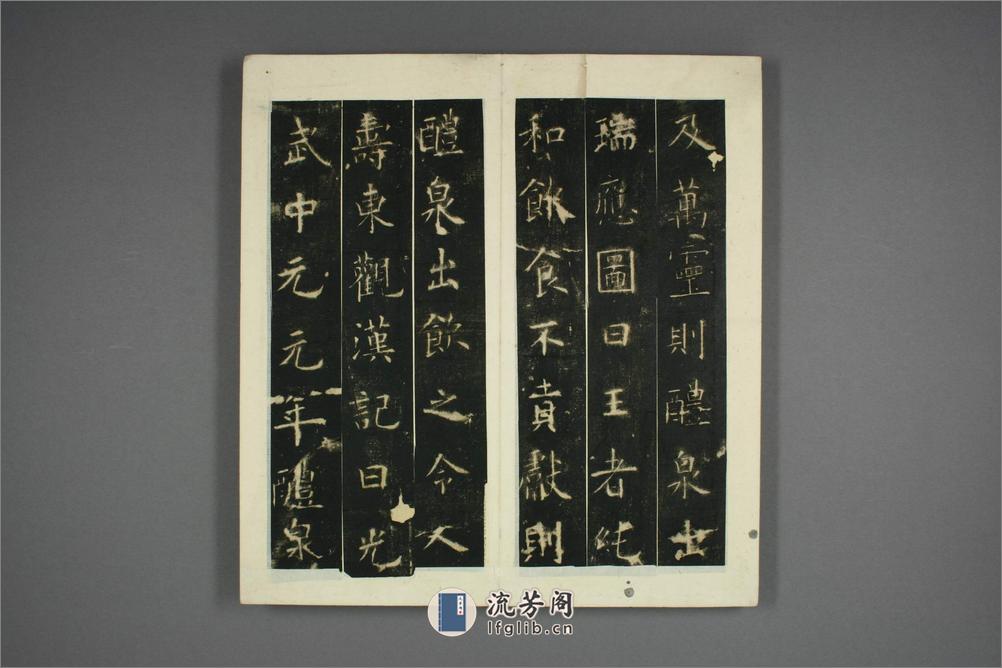 及萬靈則醴泉出
瑞應圖曰王者純
和飲食不貢獻則
醴泉出飲之令人
壽東觀漢記曰光
武中元元年醴泉
流芳阁
lfglib.cn